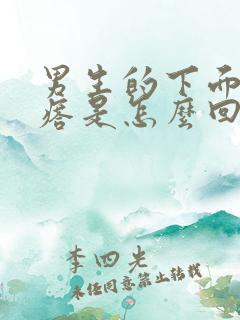 男生的下面
痞是怎麼回
李四光
未经同意禁止转载